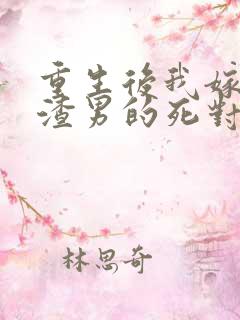 重生後我嫁
渣男的死對
林思奇